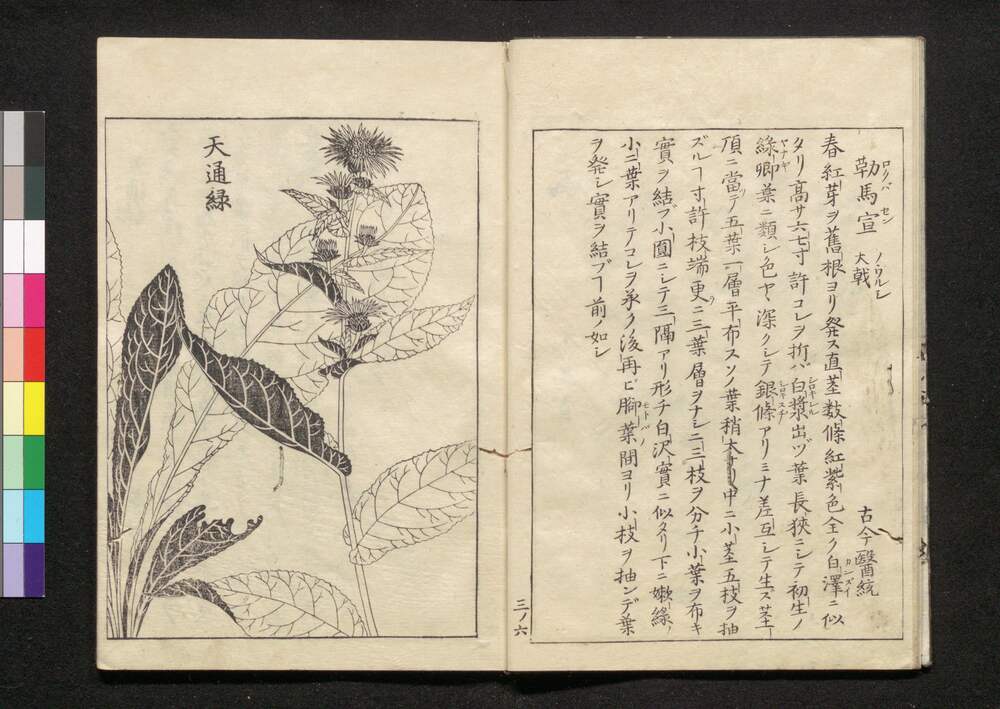 勒馬宣 ノウルシ 大戟 古今醫統
ロクバ セン
春紅芽ヲ舊根ヨリ発ス直莖数條紅紫色全ク白澤ニ似
カンズイ
タリ高サ六七寸許コレヲ折バ白漿出ヅ葉長狹ニシテ初生ノ
シロキシル
緑卿葉ニ類シ色ヤヽ深クシテ銀條アリミナ差互シテ生ス莖
ヤナギ シロキスヂ
頂ニ當テ五葉一層平布スソノ葉稍大ナリ中ニ小莖五枝ヲ抽
ズルヿ寸許枝端更ニ三葉層ヲナシ二三枝ヲ分チ小葉ヲ布キ
實ヲ結ブ小圓ニシテ三隔アリ形チ白沢實ニ似タリ下ニ嫩緑ノ
小二葉アリテコレヲ承ク後再ビ脚葉間ヨリ小枝ヲ抽ンデ葉
モトバノ
ヲ発シ實ヲ結ブヿ前ノ如シ
三ノ六
天通緑